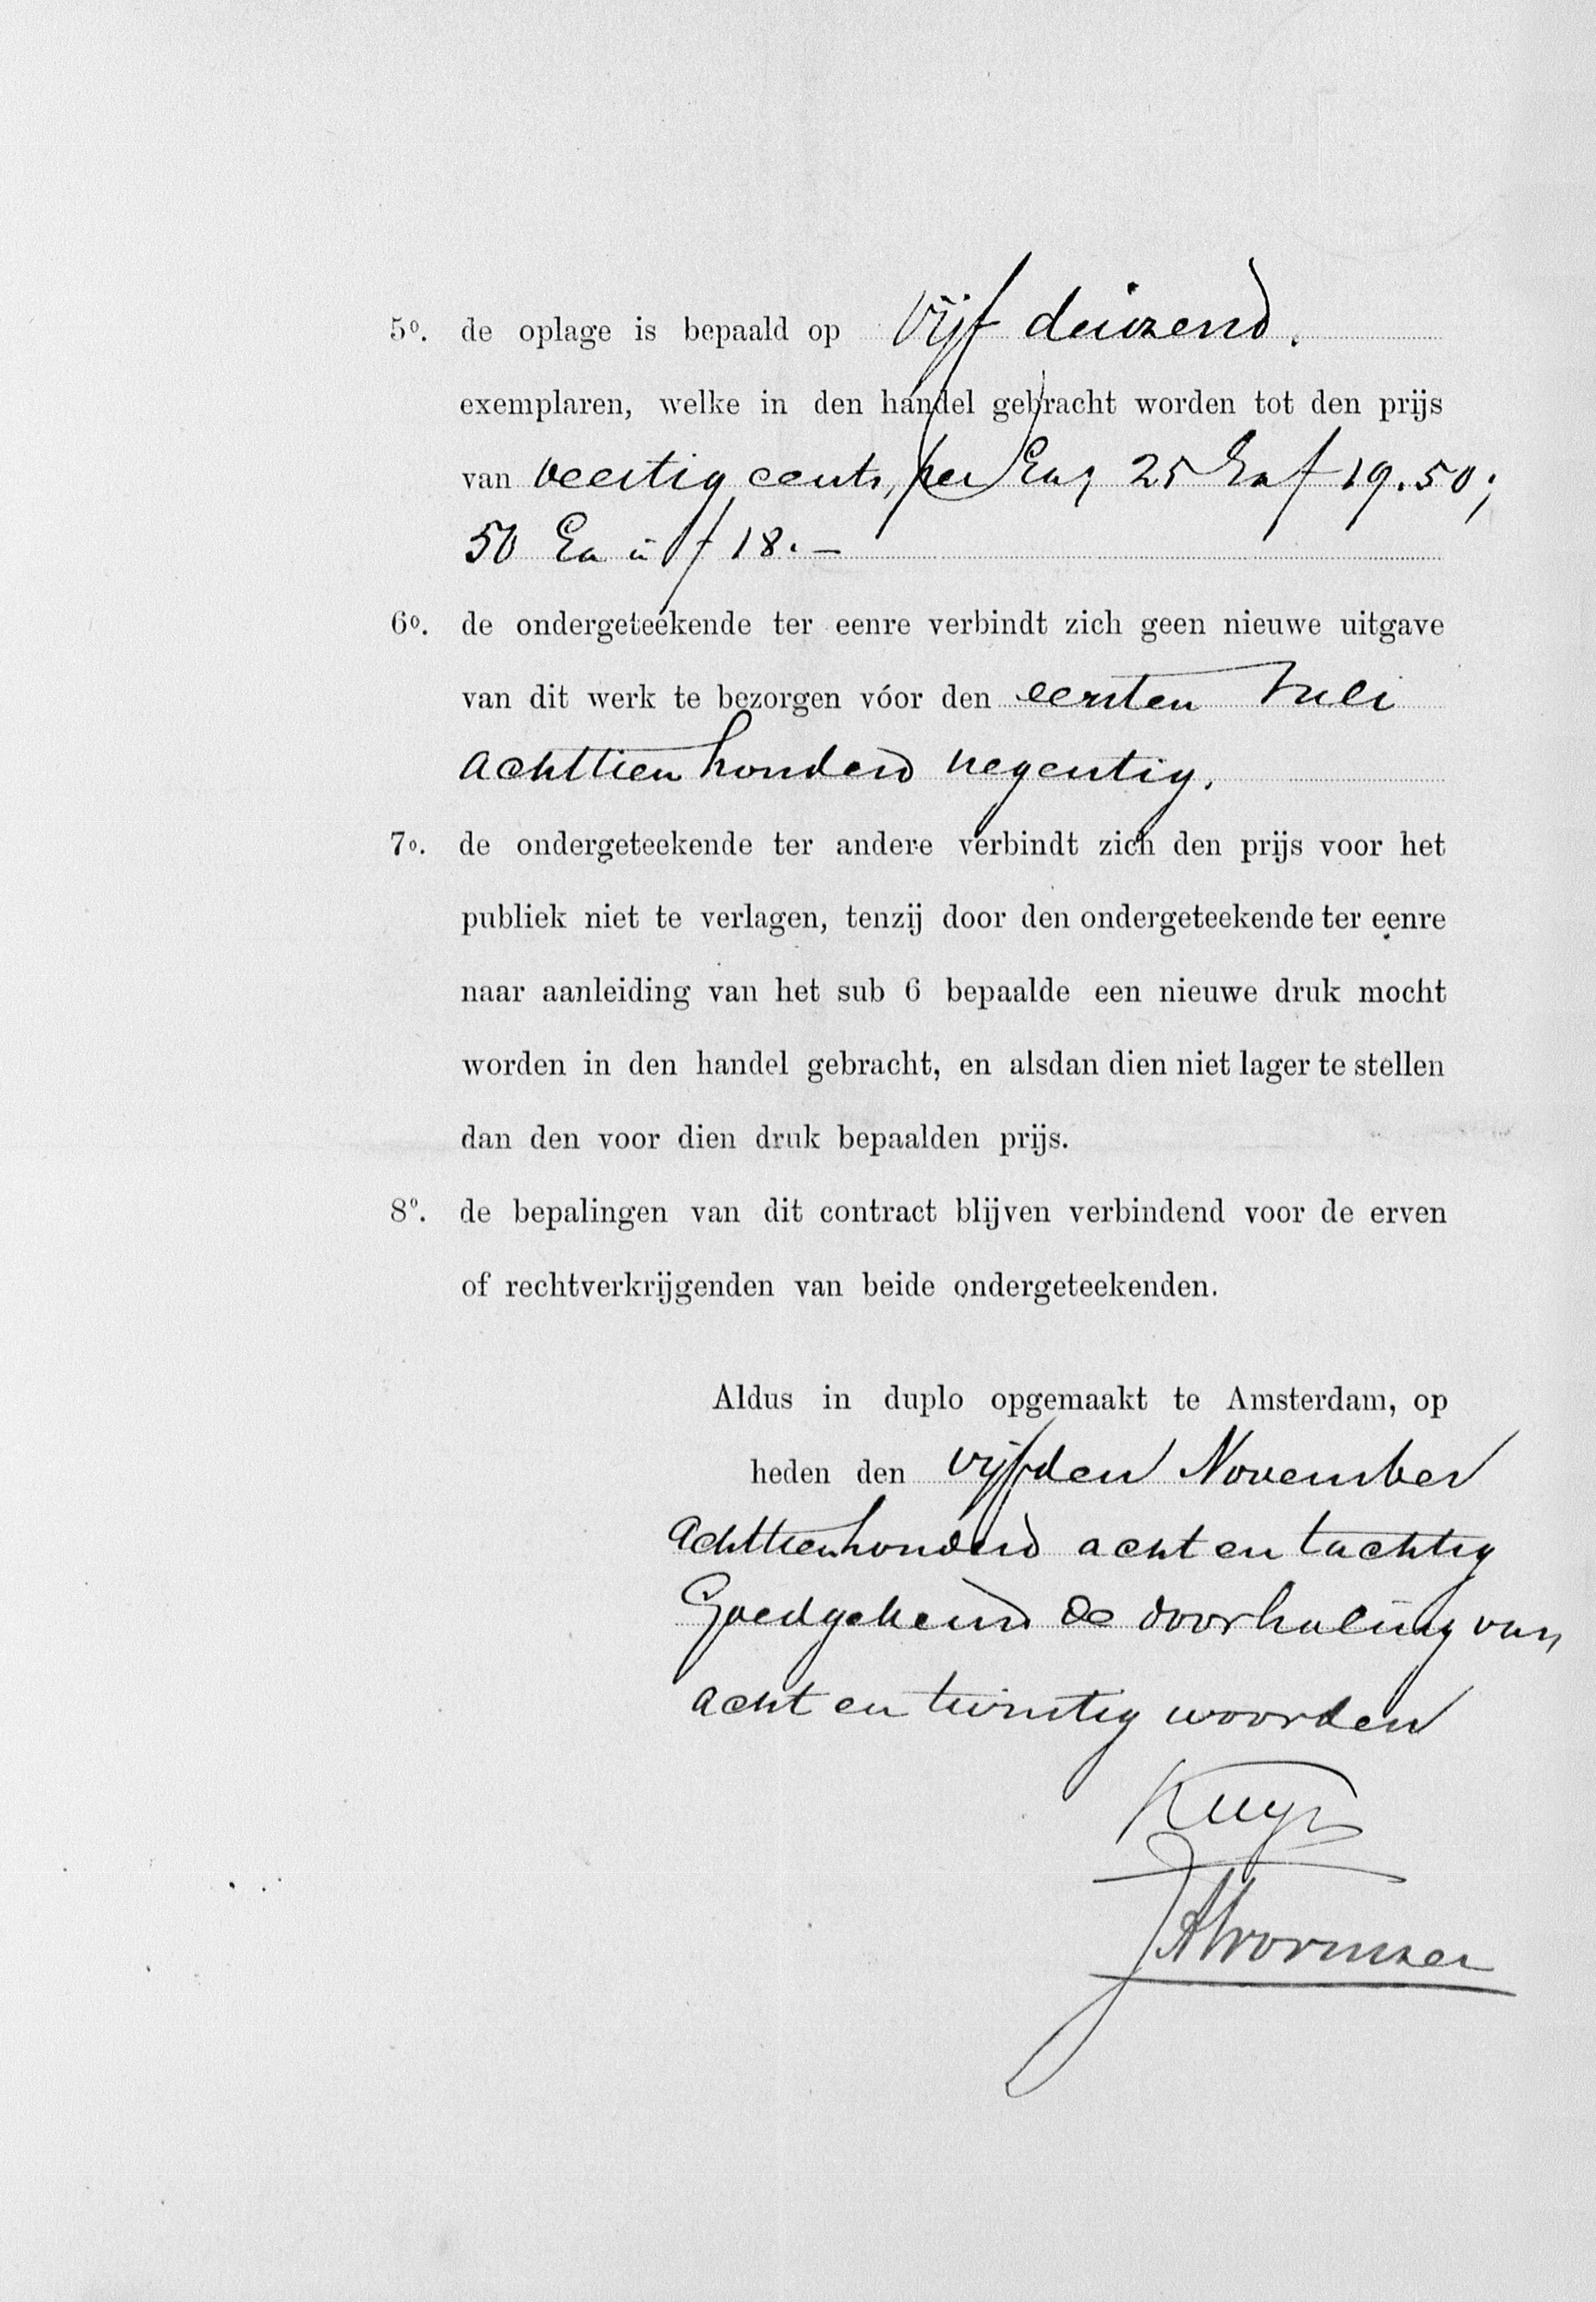 5o. de oplage is bepaald op vijf duizend.
exemplaren, welke in den handel gebracht worden tot den prijs
van veertig cents, per Ex, 25 Ex f 19.50;
50 Ex à f 18.—
6o. de ondergeteekende ter eenre verbindt zich geen nieuwe uitgave
van dit werk te bezorgen vóor den eersten Juli
achttien honderd negentig.
7o. de ondergeteekende ter andere verbindt zich den prijs voor het
publiek niet te verlagen, tenzij door den ondergeteekende ter eenre
naar aanleiding van het sub 6 bepaalde een nieuwe druk mocht
worden in den handel gebracht, en alsdan dien niet lager te stellen
dan den voor dien druk bepaalden prijs.
8o. de bepalingen van dit contract blijven verbindend voor de erven
of rechtverkrijgenden van beide ondergeteekenden.
Aldus in duplo opgemaakt te Amsterdam, op
heden den vijfden November
Achttienhonderd acht en tachtig
Goedgekeurd de doorhaling van
acht en twintig woorden
Kuyper
JAWormser